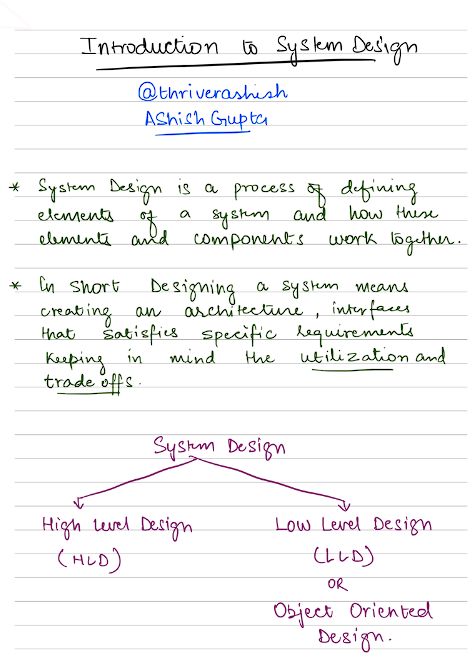 Introduction to System Design
@thriverashish
Ashish Gupta
* System Design is a process of defining
elements of a system and how these
elements and components work together.
* In short Designing a system means
creating an architecture, interfaces
that satisfies specific requirements
keeping in mind the utilization and
trade offs.
System Design
High Level Design
Low Level Design
(HLD)
(LLD)
OR
Object Oriented
Design.